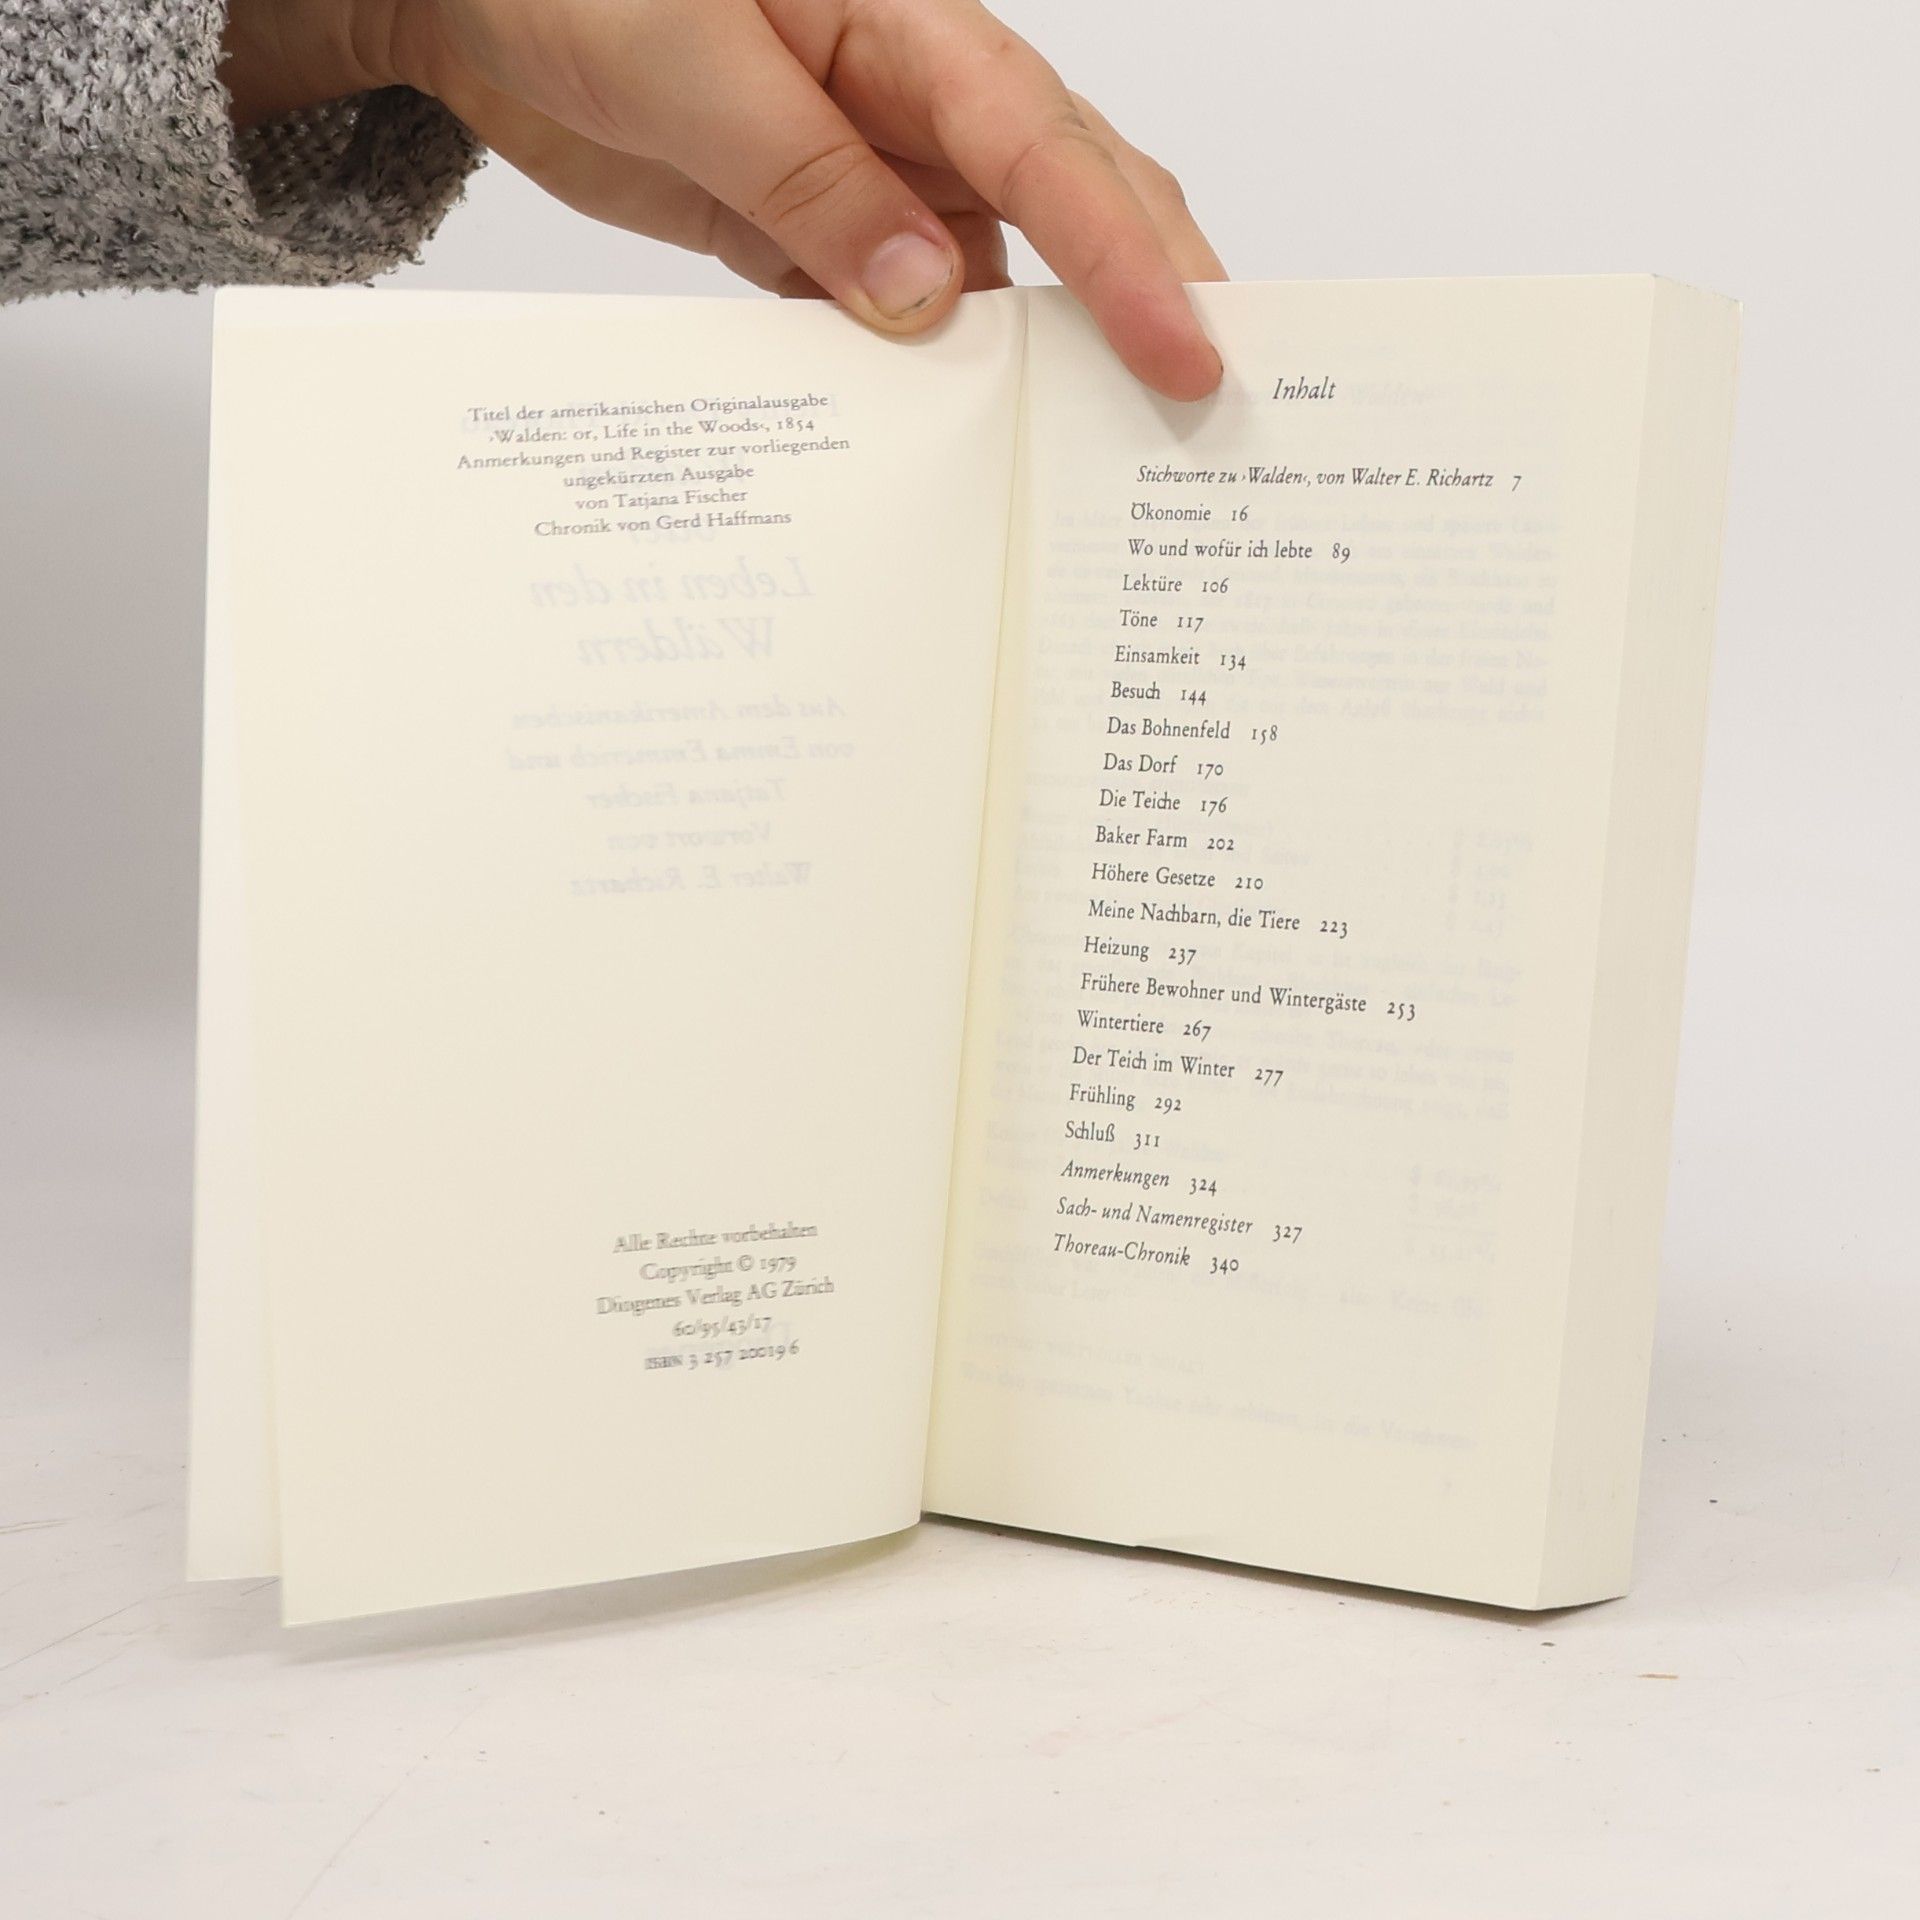 Titel der amerikanischen Originalausgabe
›Walden: or, Life in the Woods‹, 1854
Anmerkungen und Register zur vorliegenden
ungekürzten Ausgabe
von Tatjana Fischer
Chronik von Gerd Haffmans
Leben in den
Wäldern
Aus dem Amerikanischen
von Emma Emmerich und
Tatjana Fischer
Vorwort von
Walter E. Richartz
Alle Rechte vorbehalten
Copyright © 1979
Diogenes Verlag AG Zürich
60/95/43/17
ISBN 3 257 20019 6
Inhalt
Stichworte zu ›Walden‹, von Walter E. Richartz 7
Ökonomie 16
Wo und wofür ich lebte 89
Lektüre 106
Töne 117
Einsamkeit 134
Besuch 144
Das Bohnenfeld 158
Das Dorf 170
Die Teiche 176
Baker Farm 202
Höhere Gesetze 210
Meine Nachbarn, die Tiere 223
Heizung 237
Frühere Bewohner und Wintergäste 253
Wintertiere 267
Der Teich im Winter 277
Frühling 292
Schluß 311
Anmerkungen 324
Sach- und Namenregister 327
Thoreau-Chronik 340